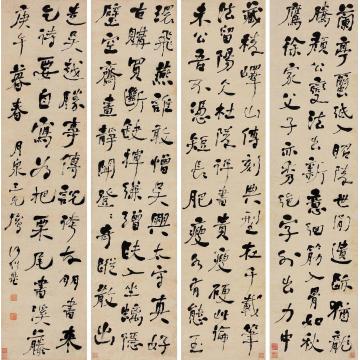 蘭亭繭紙入昭陵世間遺迹猶龍
騰顏公變法出新意細筋入骨如秋
鷹徐家父子亦秀絕字外出力中
藏稜嶧山傳刻典型在千載筆
法留陽冰杜陵評書貴瘦硬此論
未公吾不憑短長肥瘦各有態玉
環飛燕誰敢憎吳興太守真好
古購買斷缺揮縑繒龜趺入坐螭隱
壁空齋晝靜聞登登奇蹤散出
走吳越勝事傳說誇友朋書來
乞詩要自寫為把栗尾書溪藤
庚午暮春 月三兄屬 何紹基